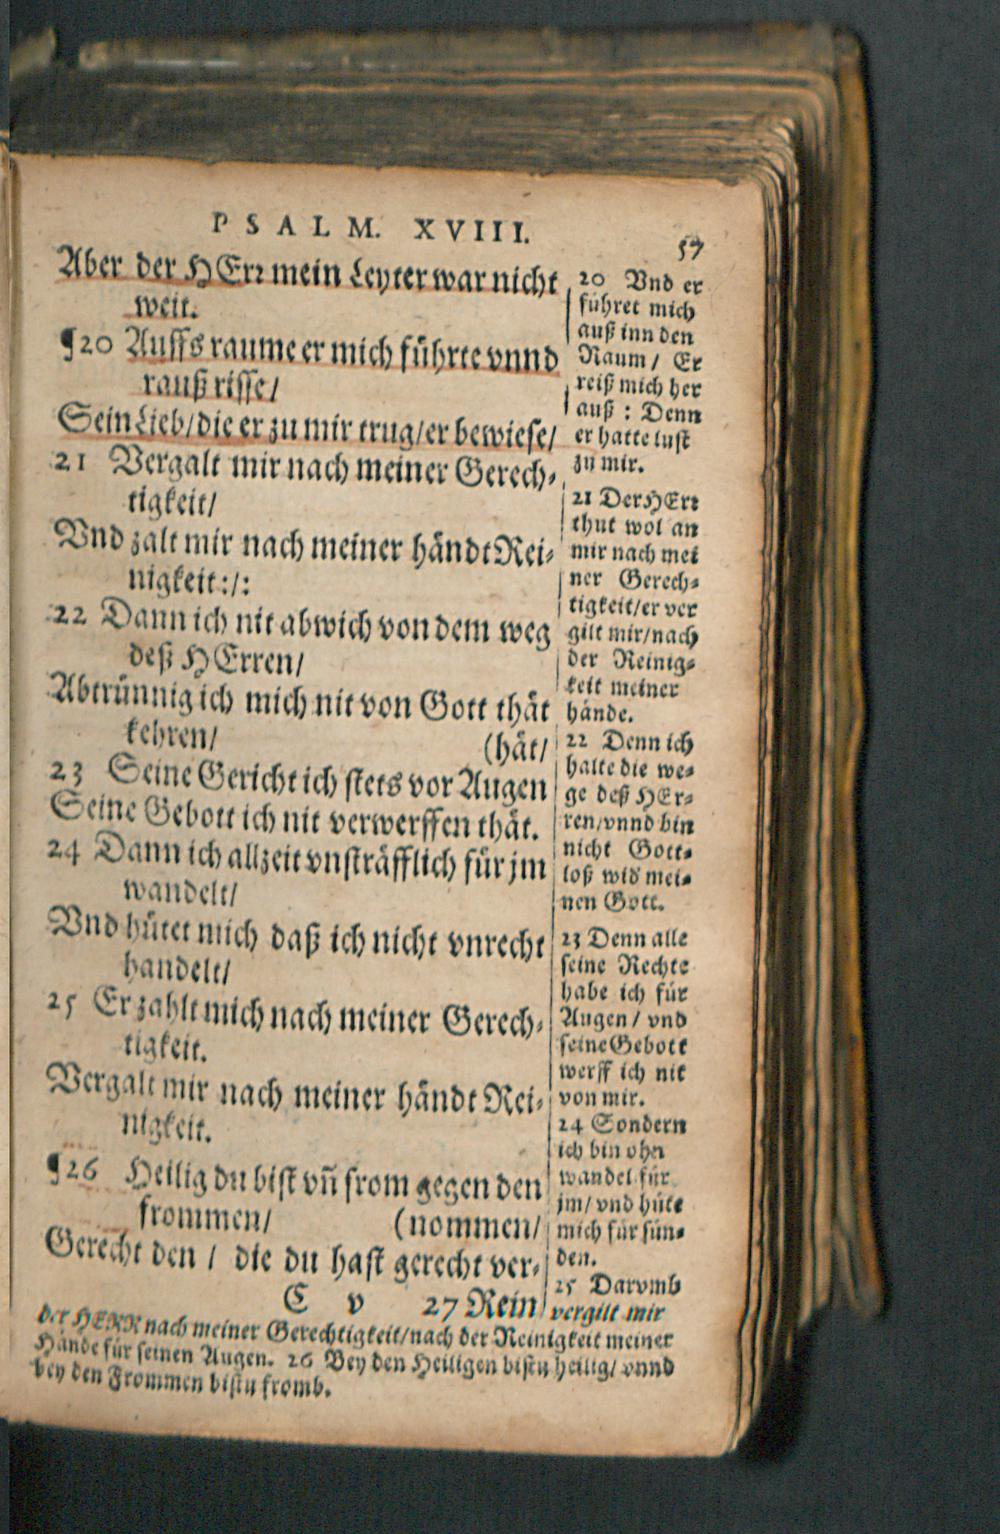 PSALM. XVIII.
57
Aber der HErr mein Leyter war nicht
weit.
¶20 Auffs raume er mich führte vnnd
rauß risse/
Sein Lieb/die er zu mir trug/er bewiese/
21 Vergalt mir nach meiner Gerech⸗
tigkeit/
Vnd zalt mir nach meiner händt Rei⸗
nigkeit:/:
22 Dann ich nit abwich von dem weg
deß HErren/
Abtrünnig ich mich nit von Gott thät
kehren/ (hät/
23 Seine Gericht ich stets vor Augen
Seine Gebott ich nit verwerffen thät.
24 Dann ich allzeit vnsträfflich für jm
wandelt/
Vnd hütet mich daß ich nicht vnrecht
handelt/
25 Er zahlt mich nach meiner Gerech⸗
tigkeit.
Vergalt mir nach meiner händt Rei⸗
nigkeit.
¶26 Heilig du bist vñ from gegen den
frommen/ (nommen/
Gerecht den / die du hast gerecht ver⸗
E v 27 Rein
20 Vnd er
führet mich
auß inn den
Raum/ Er
reiß mich her
auß : Denn
er hatte lust
zu mir.
21 Der HErr
thut wol an
mir nach mei
ner Gerech⸗
tigkeit/er ver
gilt mir/nach
der Reinig⸗
keit meiner
hände.
22 Denn ich
halte die we⸗
ge deß HEr⸗
ren/vnnd bin
nicht Gott⸗
loß wid mei⸗
nen Gott.
23 Denn alle
seine Rechte
habe ich für
Augen/ vnd
seine Gebott
werff ich nit
von mir.
24 Sondern
ich bin ohn
wandel für
jm/ vnd hüte
mich für sün⸗
den.
25 Darvmb
vergilt mir
der HERR nach meiner Gerechtigkeit/nach der Reinigkeit meiner
Hände für seinen Augen. 26 Bey den Heiligen bistu heilig/ vnnd
bey den Frommen bistu fromb.